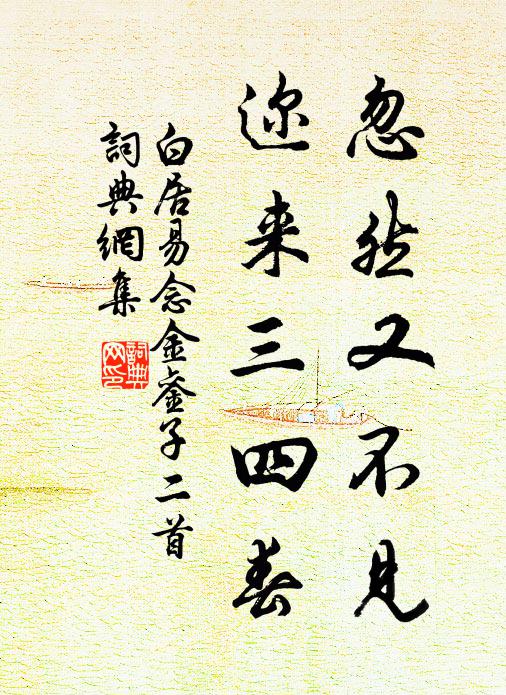 忽然又不見
迩来三四春
白居易念金銮子二首
詞典網集
詞典
网印